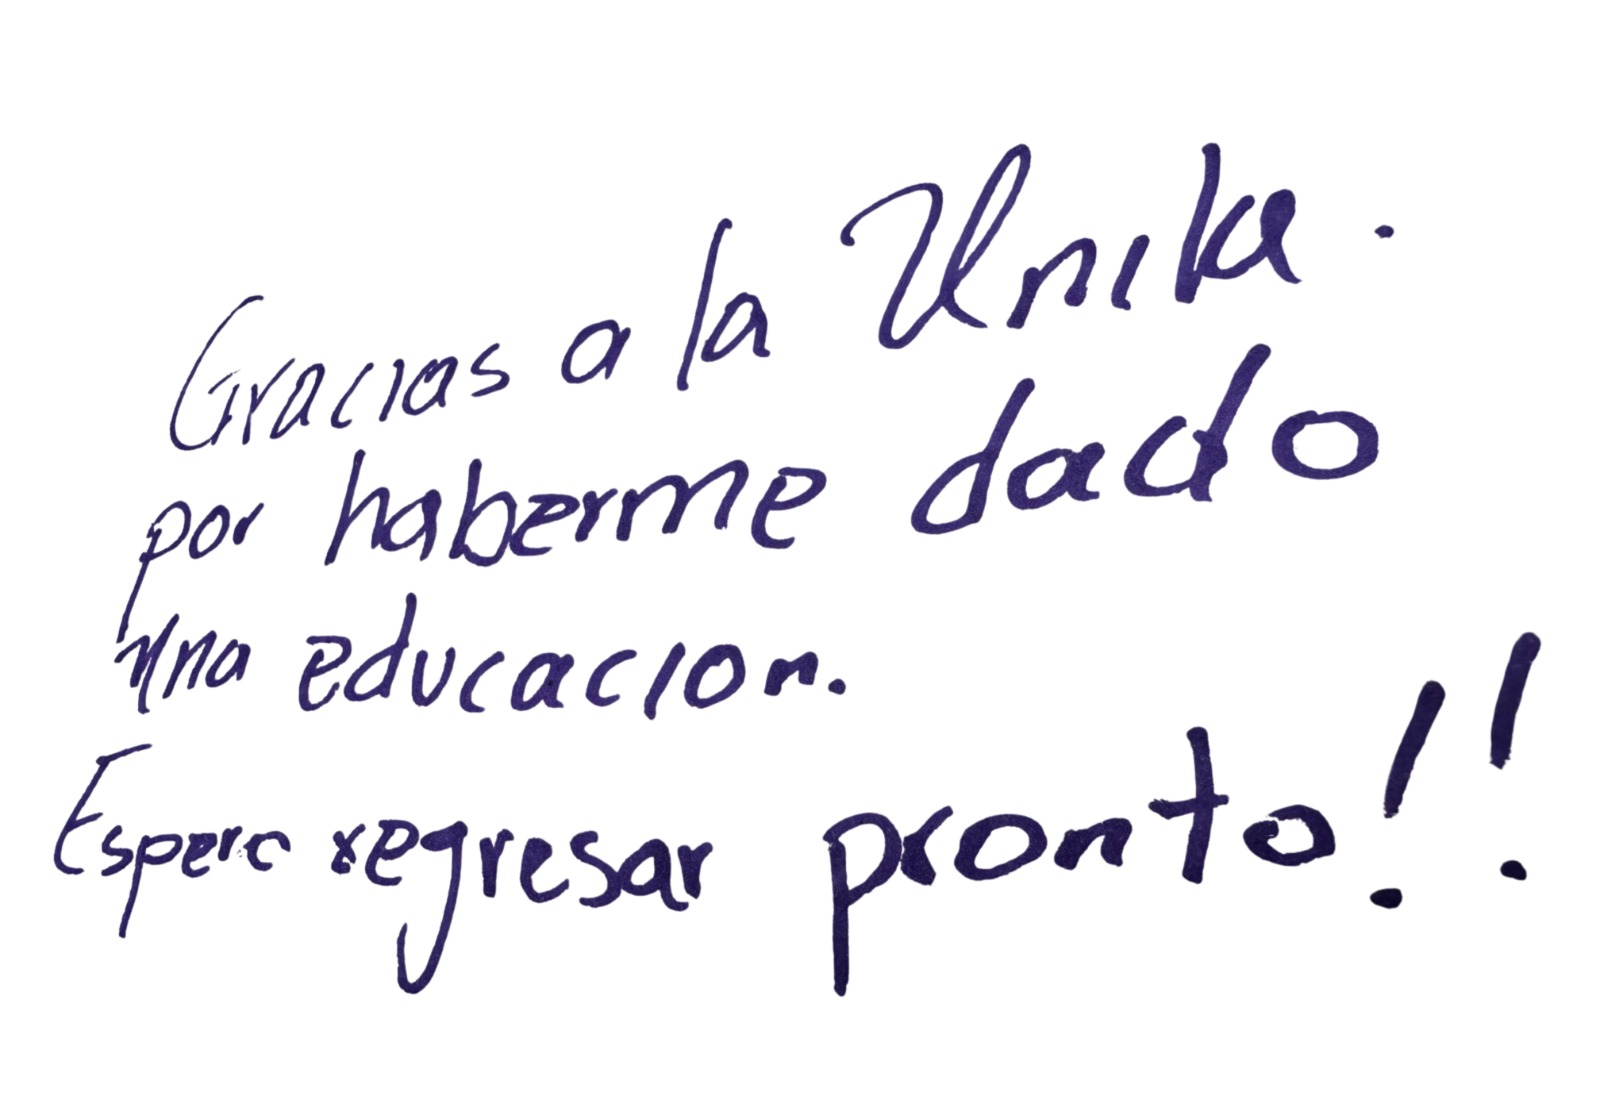 Gracias a la Unika.
por haberme dado
una educacion.
Espero regresar pronto!!